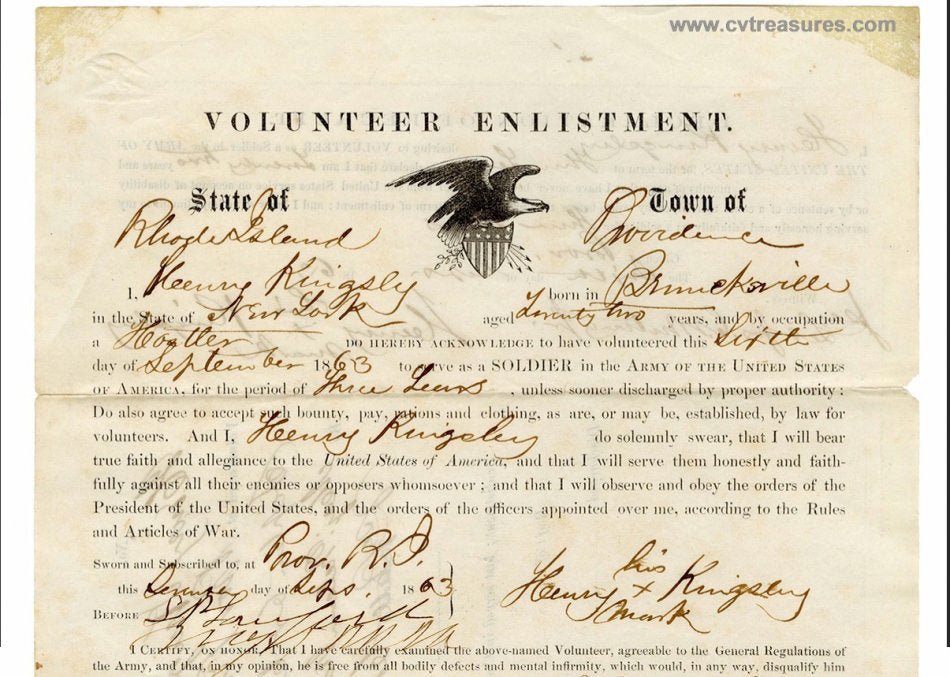 www.cvtreasures.com
VOLUNTEER ENLISTMENT.
State of Town of
Rhode Island Providence
I, Henry Kingsley born in
in the State of New York aged twenty two years, and by occupation
a DO HEREBY ACKNOWLEDGE to have volunteered this Sixth
day of September 1863 to serve as a SOLDIER in the ARMY OF THE UNITED STATES
OF AMERICA, for the period of Three Years, unless sooner discharged by proper authority:
Do also agree to accept such bounty, pay, rations and clothing, as are, or may be, established, by law for
volunteers. And I, Henry Kingsley do solemnly swear, that I will bear
true faith and allegiance to the United States of America, and that I will serve them honestly and faith-
fully against all their enemies or opposers whomsoever; and that I will observe and obey the orders of the
President of the United States, and the orders of the officers appointed over me, according to the Rules
and Articles of War.
Sworn and Subscribed to, at Prov. R.I.
this day of Sept. 1863
his
Henry x Kingsley
mark
BEFORE
I CERTIFY, ON HONOR, That I have carefully examined the above-named Volunteer, agreeable to the General Regulations of
the Army, and that, in my opinion, he is free from all bodily defects and mental infirmity, which would, in any way, disqualify him